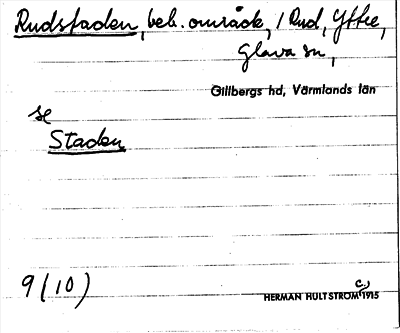 Rudstaden, beb. område, i Rud, Yttre,
Glava sn,
Gillbergs hd, Värmlands län
se
Staden
9 (10)
c.)
HERMAN HULTSTRÖM 1915